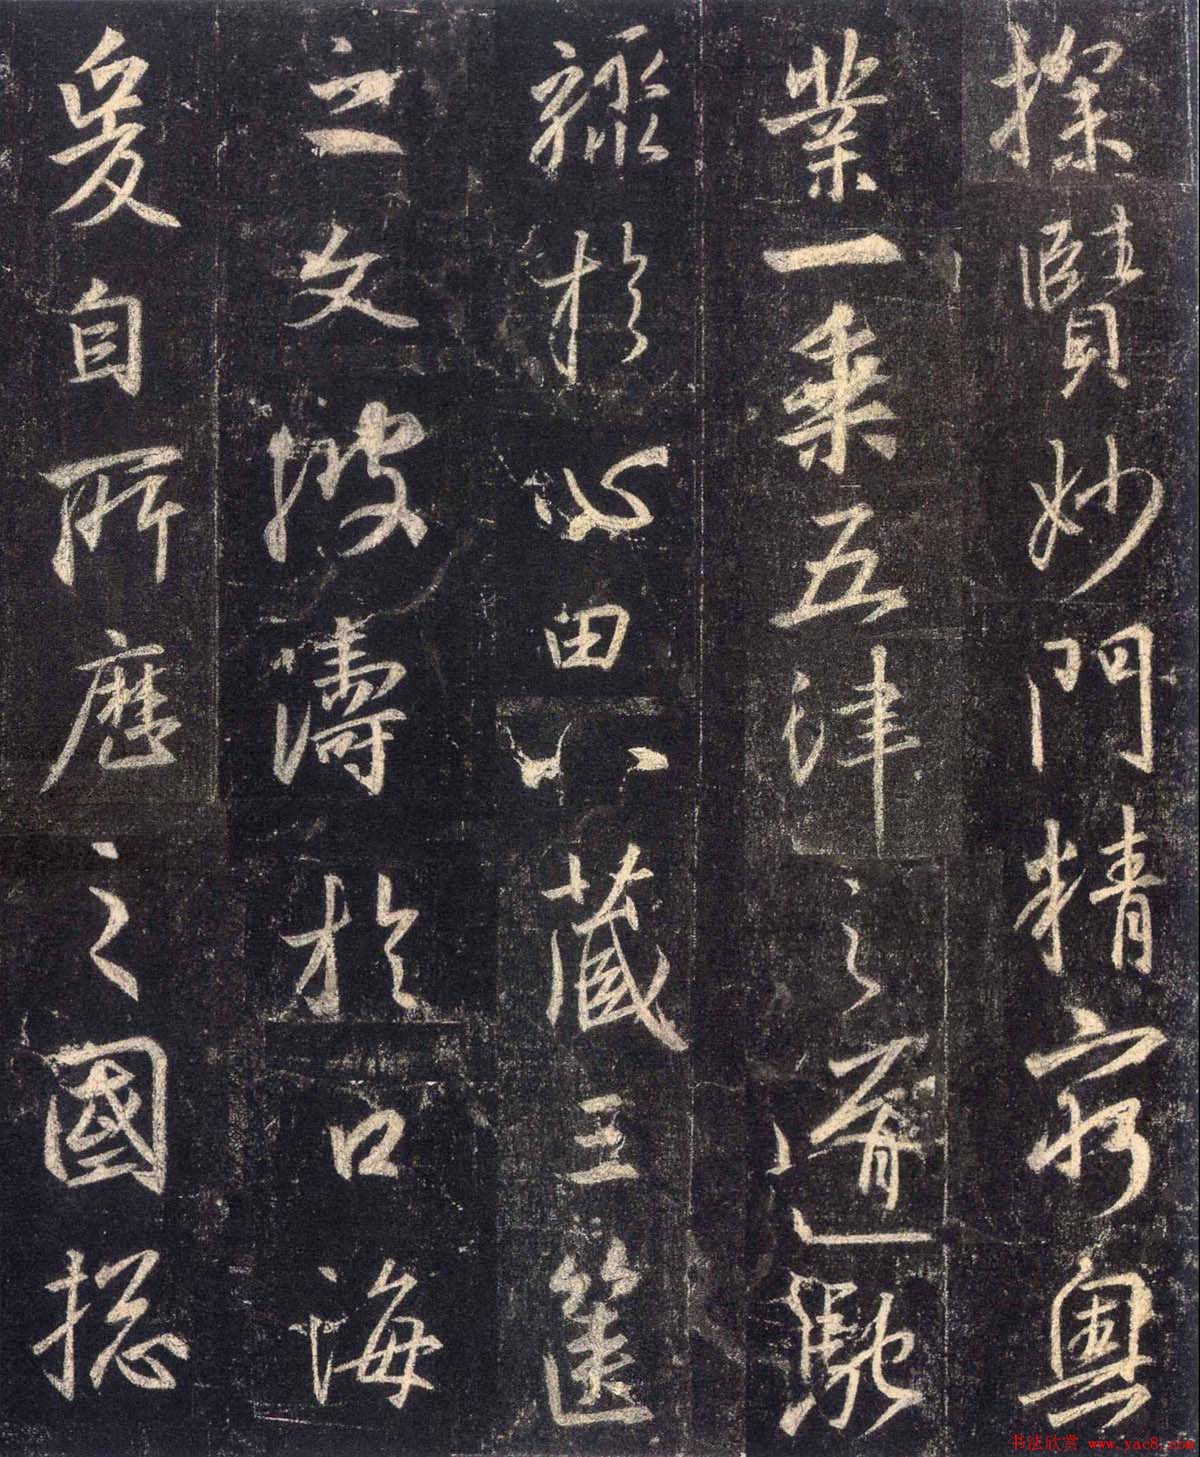 探賾妙門精窮奧
業一乘五津之道馳
驟於心田八藏三篋
之文波濤於口海
爰自所歷之國摠
书法欣赏 www.yac8.com